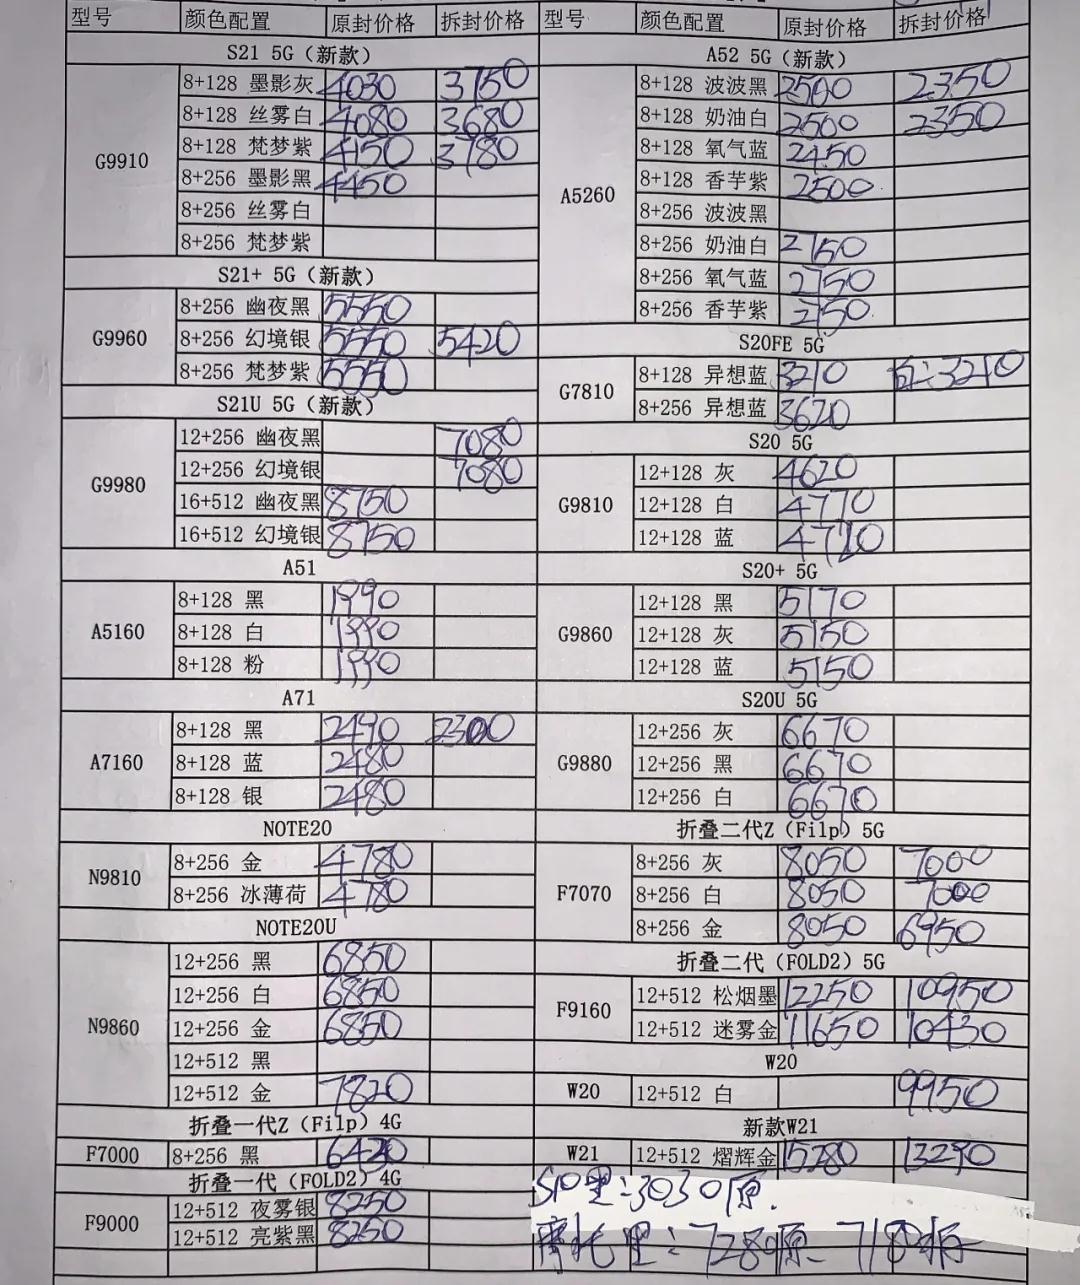 型号 颜色配置 原封价格 拆封价格
S21 5G（新款）
G9910
8+128 墨影灰 4030 3750
8+128 丝雾白 4080 3680
8+128 梵梦紫 4150 3780
8+256 墨影黑 4450
8+256 丝雾白
8+256 梵梦紫
S21+ 5G（新款）
G9960
8+256 幽夜黑 5550
8+256 幻境银 5550 5420
8+256 梵梦紫 5550
S21U 5G（新款）
G9980
12+256 幽夜黑 7080
12+256 幻境银 7080
16+512 幽夜黑 8750
16+512 幻境银 8750
A51
A5160
8+128 黑 1990
8+128 白 1990
8+128 粉 1990
A71
A7160
8+128 黑 2490 2300
8+128 蓝 2480
8+128 银 2480
NOTE20
N9810
8+256 金 4780
8+256 冰薄荷 4780
NOTE20U
N9860
12+256 黑 6850
12+256 白 6850
12+256 金 6850
12+512 黑
12+512 金 7820
折叠一代Z（Filp）4G
F7000 8+256 黑 6420
折叠一代（FOLD2）4G
F9000
12+512 夜雾银 8250
12+512 亮紫黑 8250
型号 颜色配置 原封价格 拆封价格
A52 5G（新款）
A5260
8+128 波波黑 2500 2350
8+128 奶油白 2500 2350
8+128 氧气蓝 2450
8+128 香芋紫 2500
8+256 波波黑
8+256 奶油白 2750
8+256 氧气蓝 2750
8+256 香芋紫 2750
S20FE 5G
G7810
8+128 异想蓝 3210 白:3210
8+256 异想蓝 3620
S20 5G
G9810
12+128 灰 4620
12+128 白 4770
12+128 蓝 4720
S20+ 5G
G9860
12+128 黑 5170
12+128 灰 5150
12+128 蓝 5150
S20U 5G
G9880
12+256 灰 6670
12+256 黑 6670
12+256 白 6670
折叠二代Z（Filp）5G
F7070
8+256 灰 8050 7000
8+256 白 8050 7000
8+256 金 8050 6950
折叠二代（FOLD2）5G
F9160
12+512 松烟墨 12250 10950
12+512 迷雾金 11650 10430
W20
W20 12+512 白 9950
新款W21
W21 12+512 熠辉金 15280 13290
S10黑:3030原.
摩托黑:7280原、7180拆